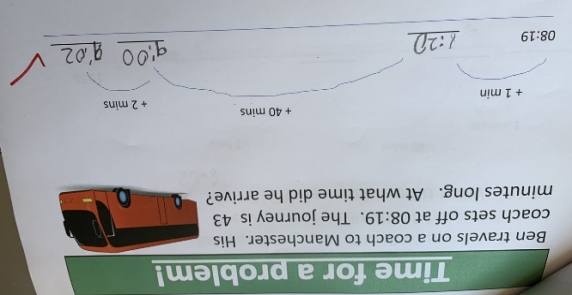 Time for a problem!
Ben travels on a coach to Manchester. His
coach sets off at 08:19. The journey is 43
minutes long. At what time did he arrive?
+ 1 min + 40 mins + 2 mins
08:19 9:00 9:02